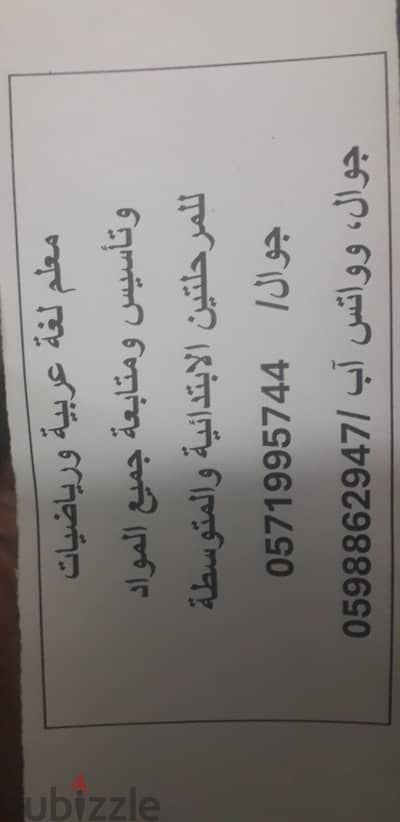 معلم لغة عربية ورياضيات
وتأسيس ومتابعة جميع المواد
للمرحلتين الابتدائية والمتوسطة
جوال/ 0571995744
جوال، وواتس آب /0598862947
ubizzle